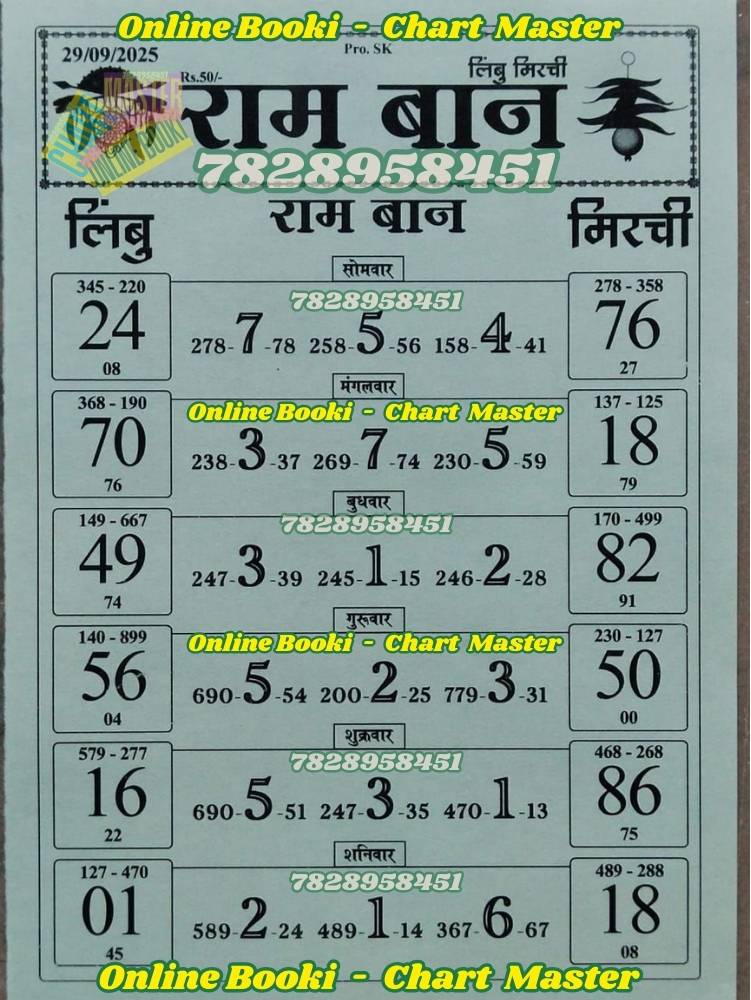 Online Booki - Chart Master
29/09/2025
Pro. SK
Rs.50/-
लिंबु मिरची
राम बान
7828958451
लिंबु
राम बान
मिरची
सोमवार
345 - 220
24
08
7828958451
278-7-78 258-5-56 158-4-41
278 - 358
76
27
मंगलवार
368 - 190
70
76
Online Booki - Chart Master
238-3-37 269-7-74 230-5-59
137 - 125
18
79
बुधवार
149 - 667
49
74
7828958451
247-3-39 245-1-15 246-2-28
170 - 499
82
91
गुरूवार
140 - 899
56
04
Online Booki - Chart Master
690-5-54 200-2-25 779-3-31
230 - 127
50
00
शुक्रवार
579 - 277
16
22
7828958451
690-5-51 247-3-35 470-1-13
468 - 268
86
75
शनिवार
127 - 470
01
45
7828958451
589-2-24 489-1-14 367-6-67
489 - 288
18
08
Online Booki - Chart Master